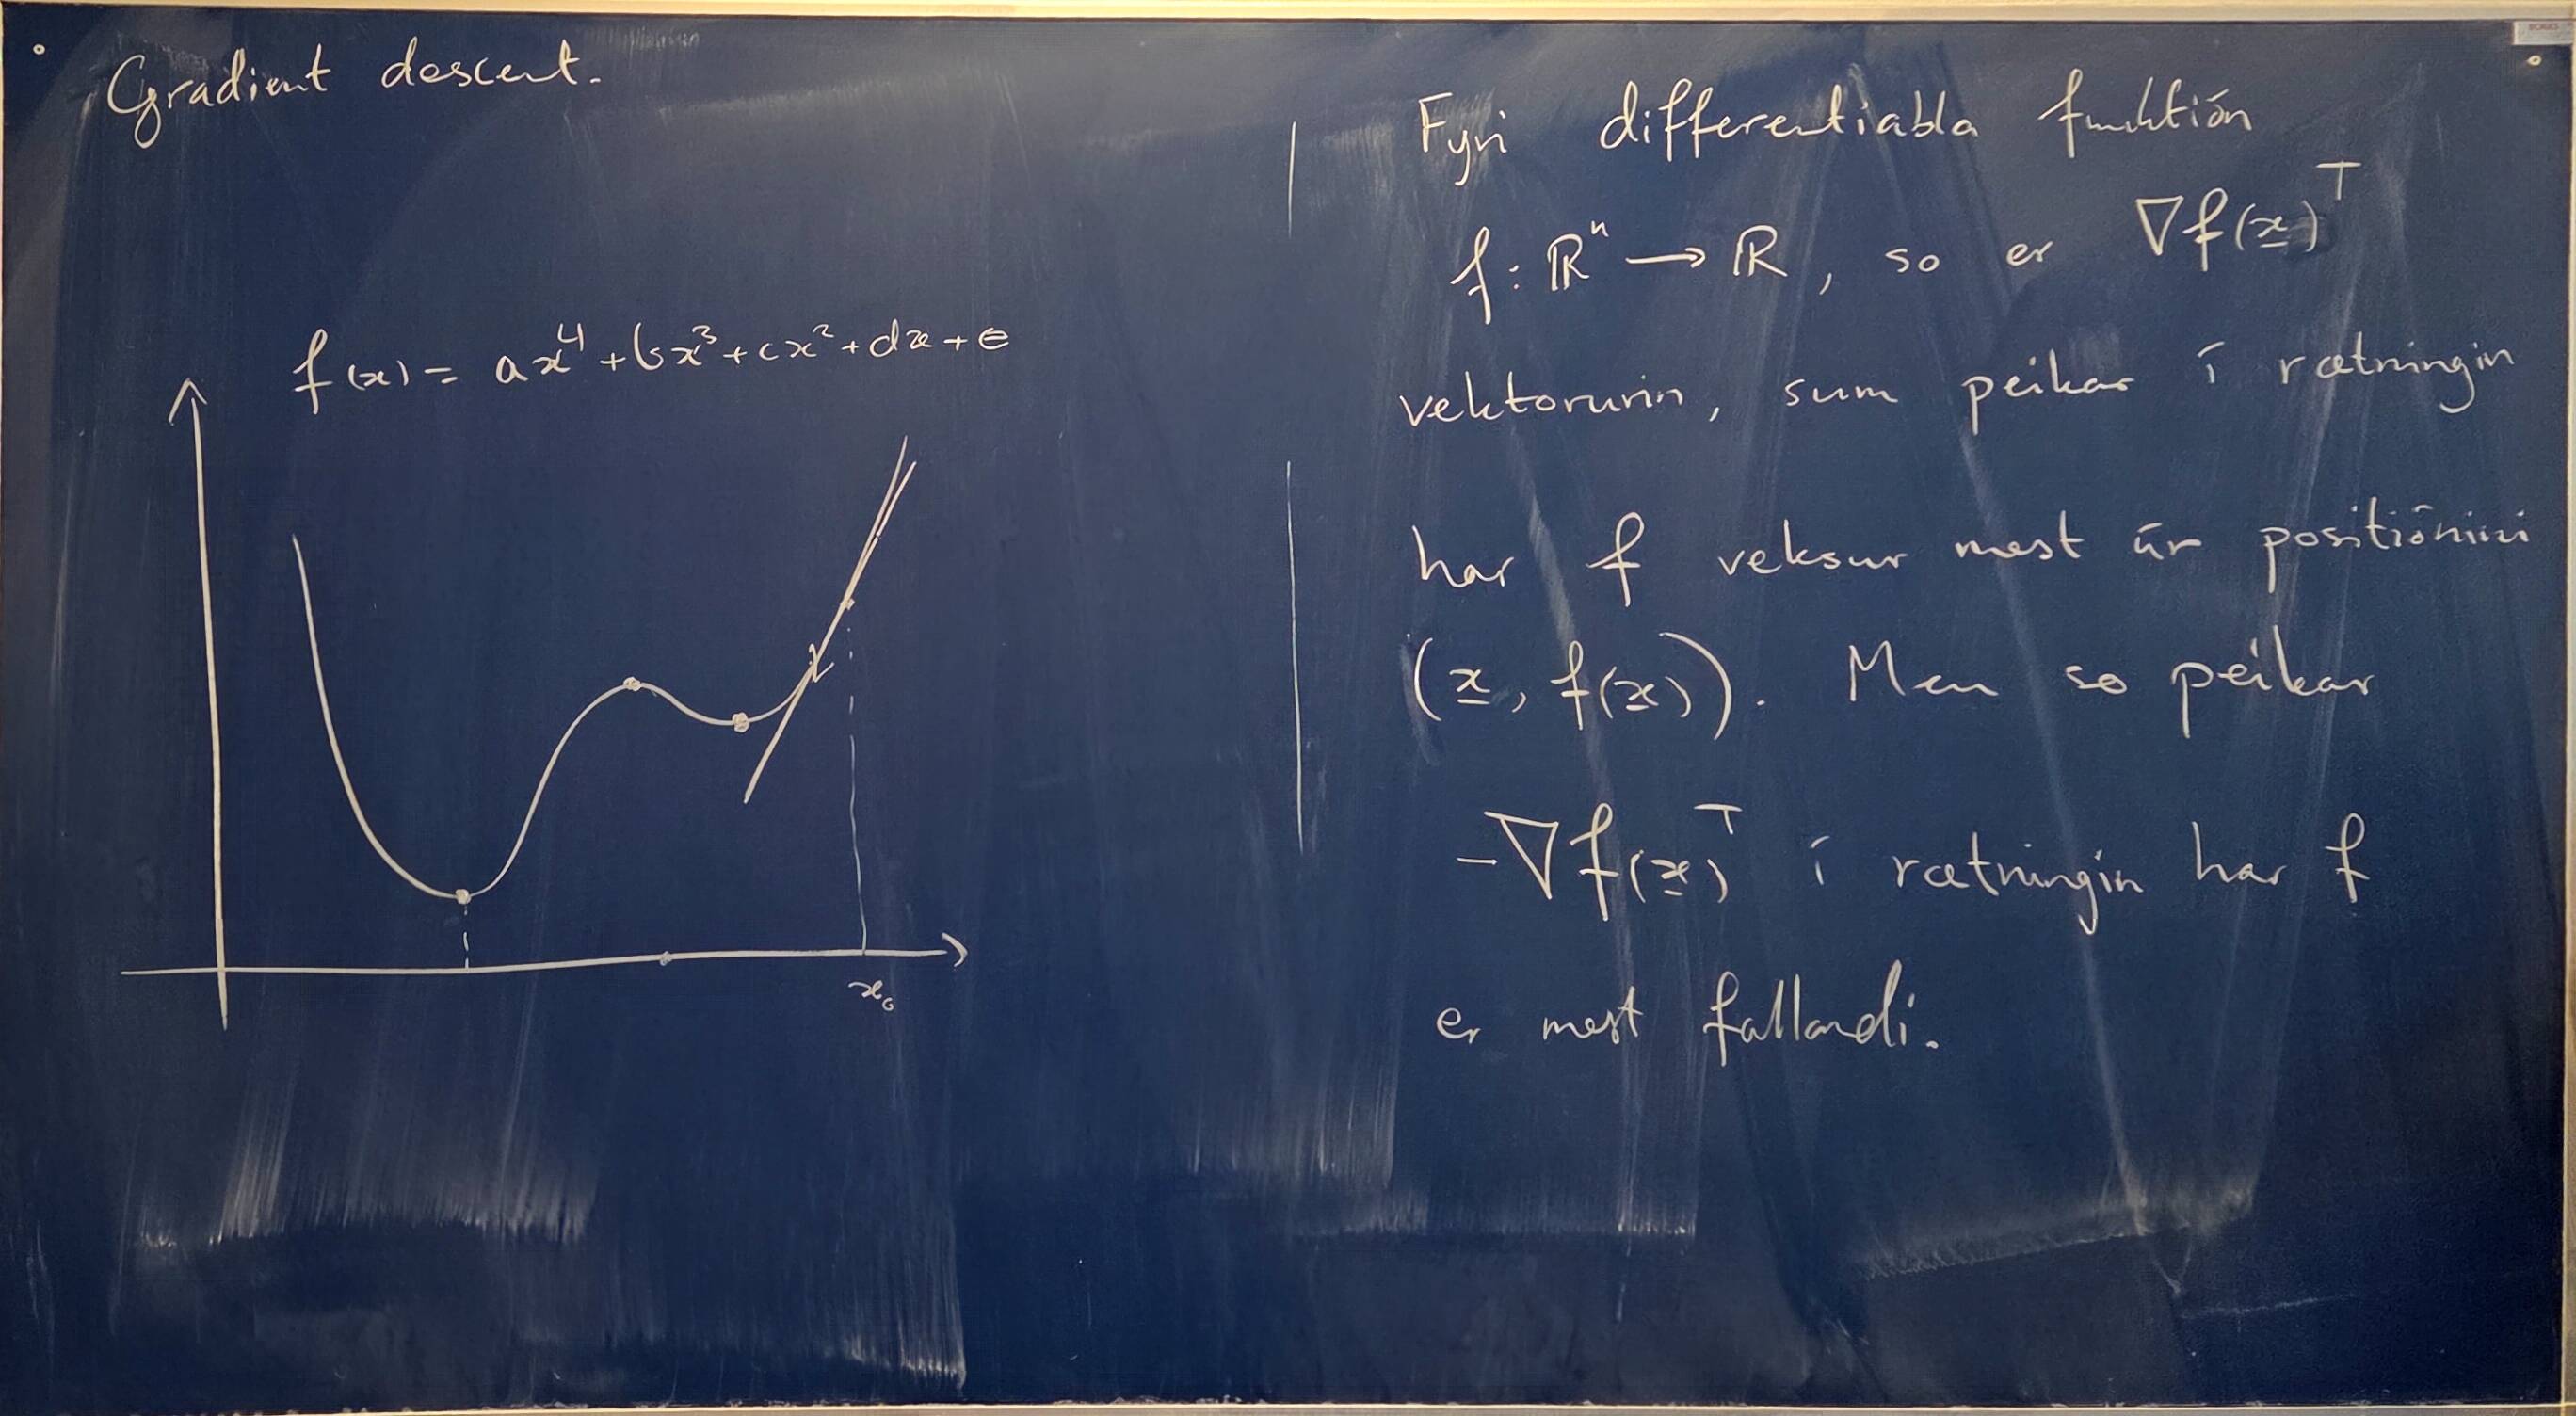 Gradient descent.
f(x) = ax⁴+bx³+cx²+dx+e
x₀
Fyri differentiabla funktión
f: ℝⁿ → ℝ, so er ∇f(x̲)ᵀ
vektorurin, sum peikar í rætningin
har f veksur mest úr positiónini
(x̲, f(x̲)). Men so peikar
-∇f(x̲)ᵀ í rætningin har f
er mest fallandi.